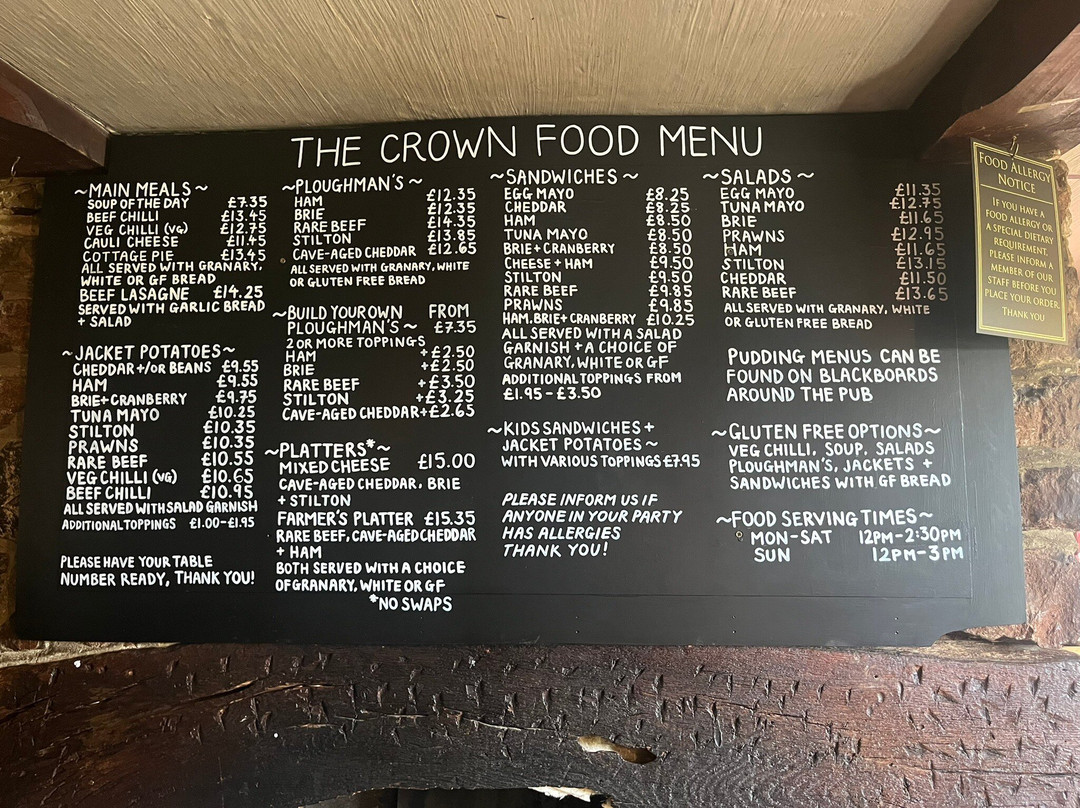 THE CROWN FOOD MENU
~MAIN MEALS~
SOUP OF THE DAY £7.35
BEEF CHILLI £13.45
VEG CHILLI (VG) £12.75
CAULI CHEESE £11.45
COTTAGE PIE £13.45
ALL SERVED WITH GRANARY,
WHITE OR GF BREAD
BEEF LASAGNE £14.25
SERVED WITH GARLIC BREAD
+ SALAD
~JACKET POTATOES~
CHEDDAR +/OR BEANS £9.55
HAM £9.55
BRIE+CRANBERRY £9.75
TUNA MAYO £10.25
STILTON £10.35
PRAWNS £10.35
RARE BEEF £10.55
VEG CHILLI (VG) £10.65
BEEF CHILLI £10.95
ALL SERVED WITH SALAD GARNISH
ADDITIONAL TOPPINGS £1.00-£1.95
PLEASE HAVE YOUR TABLE
NUMBER READY, THANK YOU!
~PLOUGHMAN'S~
HAM £12.35
BRIE £12.35
RARE BEEF £14.35
STILTON £13.85
CAVE-AGED CHEDDAR £12.65
ALL SERVED WITH GRANARY, WHITE
OR GLUTEN FREE BREAD
~BUILD YOUR OWN FROM
PLOUGHMAN'S~ £7.35
2 OR MORE TOPPINGS
HAM +£2.50
BRIE +£2.50
RARE BEEF +£3.50
STILTON +£3.25
CAVE-AGED CHEDDAR+£2.65
~PLATTERS*~
MIXED CHEESE £15.00
CAVE-AGED CHEDDAR, BRIE
+ STILTON
FARMER'S PLATTER £15.35
RARE BEEF, CAVE-AGED CHEDDAR
+ HAM
BOTH SERVED WITH A CHOICE
OF GRANARY, WHITE OR GF
*NO SWAPS
~SANDWICHES~
EGG MAYO £8.25
CHEDDAR £8.25
HAM £8.50
TUNA MAYO £8.50
BRIE+CRANBERRY £8.50
CHEESE + HAM £9.50
STILTON £9.50
RARE BEEF £9.85
PRAWNS £9.85
HAM, BRIE+CRANBERRY £10.25
ALL SERVED WITH A SALAD
GARNISH + A CHOICE OF
GRANARY, WHITE OR GF
ADDITIONAL TOPPINGS FROM
£1.95-£3.50
~KIDS SANDWICHES +
JACKET POTATOES~
WITH VARIOUS TOPPINGS £7.95
PLEASE INFORM US IF
ANYONE IN YOUR PARTY
HAS ALLERGIES
THANK YOU!
~SALADS~
EGG MAYO £11.35
TUNA MAYO £12.75
BRIE £11.65
PRAWNS £12.95
HAM £11.65
STILTON £13.15
CHEDDAR £11.50
RARE BEEF £13.65
ALL SERVED WITH GRANARY, WHITE
OR GLUTEN FREE BREAD
PUDDING MENUS CAN BE
FOUND ON BLACKBOARDS
AROUND THE PUB
~GLUTEN FREE OPTIONS~
VEG CHILLI, SOUP, SALADS
PLOUGHMAN'S, JACKETS +
SANDWICHES WITH GF BREAD
~FOOD SERVING TIMES~
MON-SAT 12PM-2:30PM
SUN 12PM-3PM
FOOD ALLERGY
NOTICE
IF YOU HAVE A
FOOD ALLERGY OR
A SPECIAL DIETARY
REQUIREMENT,
PLEASE INFORM A
MEMBER OF OUR
STAFF BEFORE YOU
PLACE YOUR ORDER.
THANK YOU